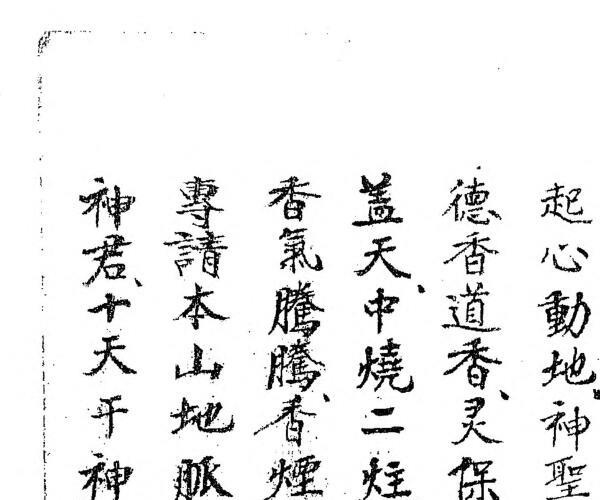 起心動地、神聖
德香道香、灵保
盖天、中燒二炷
香氣騰騰、香煙
專請本山地脈
神君、十天干神